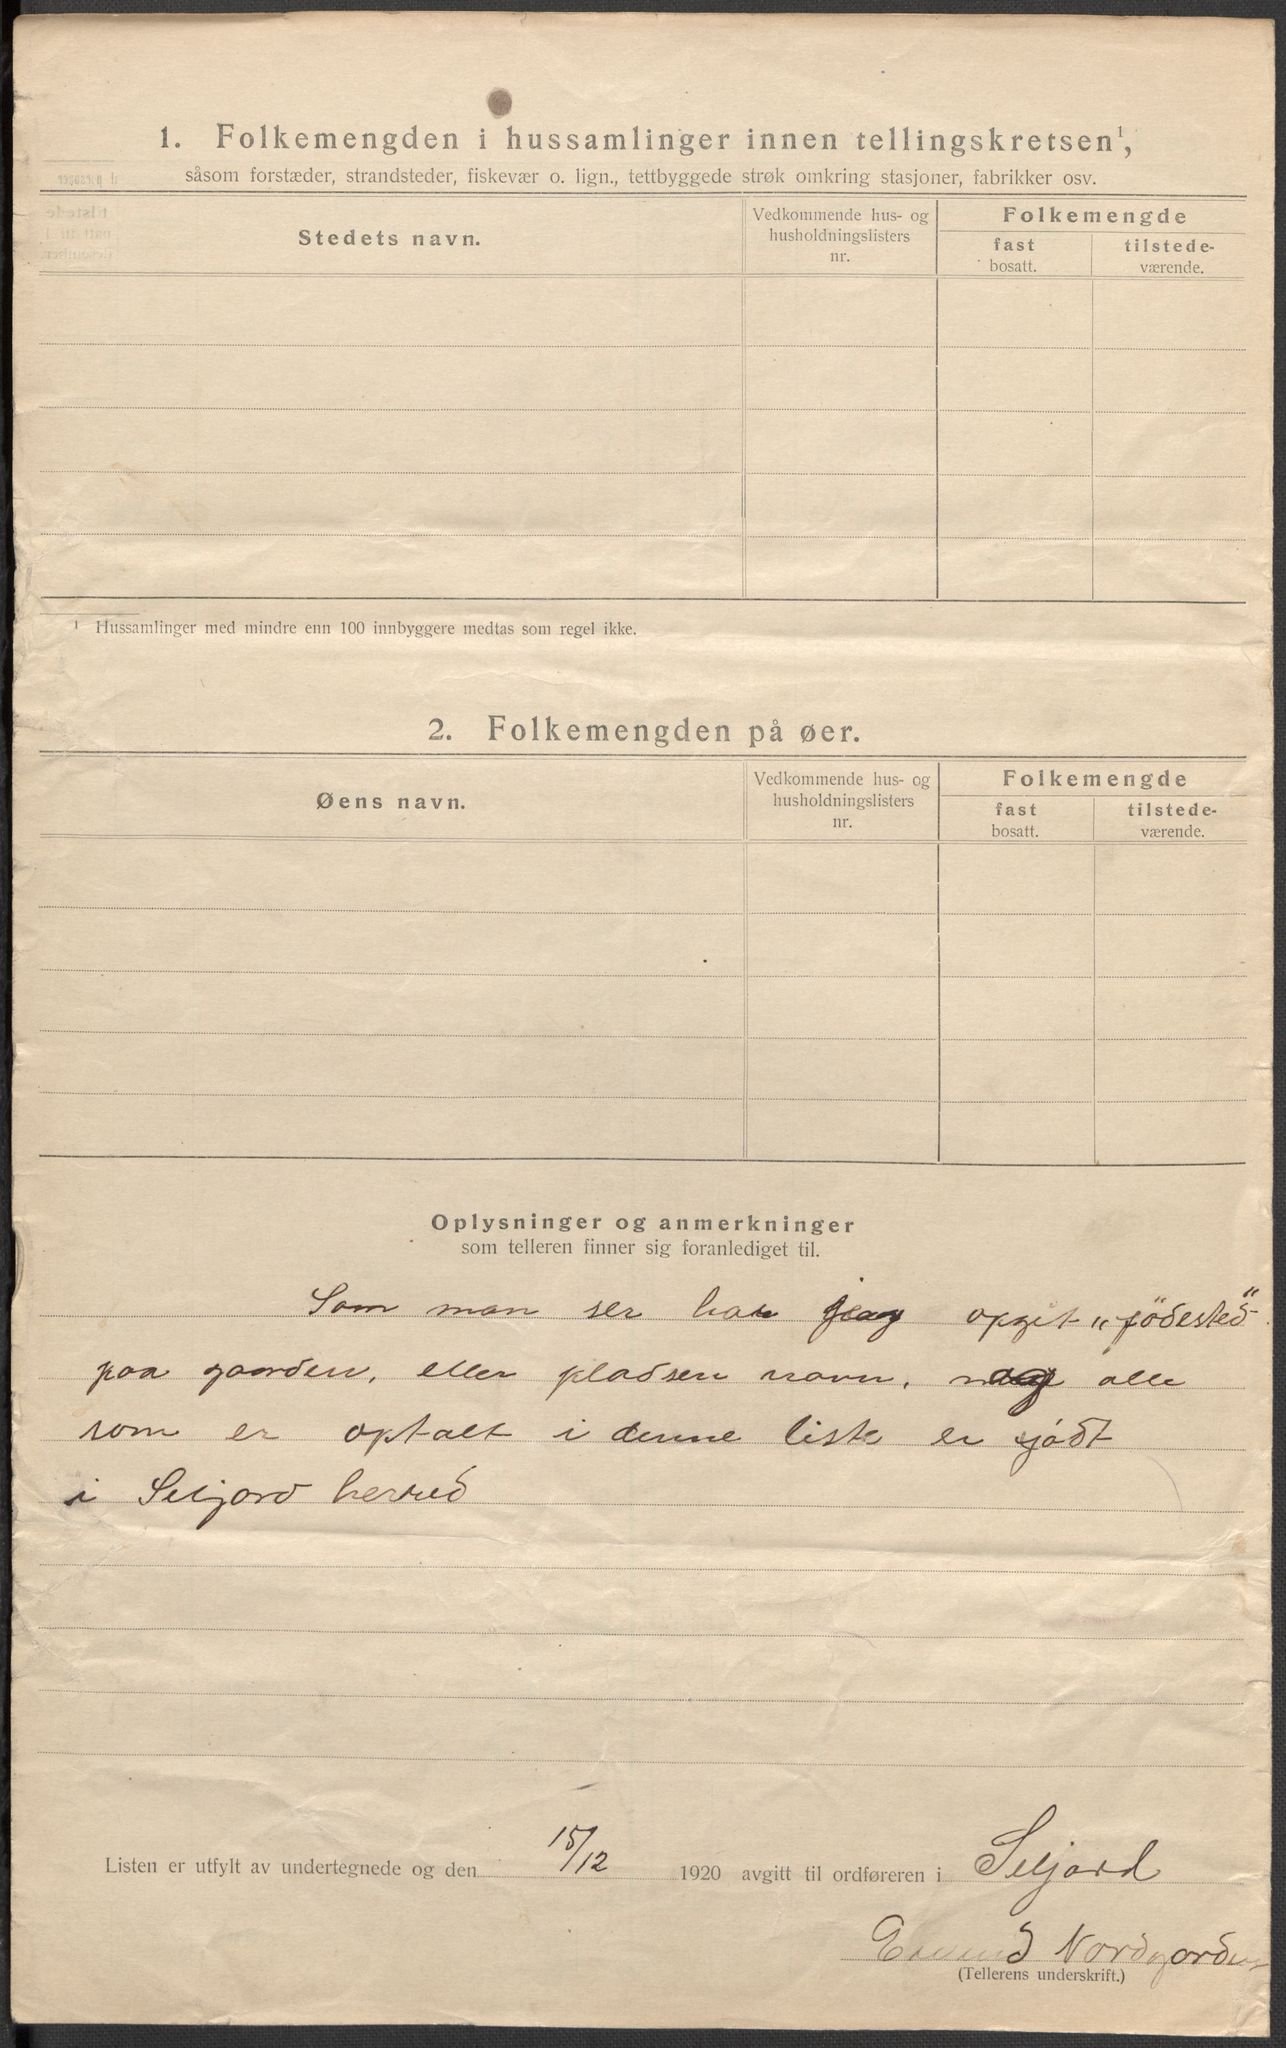 1. Folkemengden i hussamlinger innen tellingskretsen¹,
såsom forstæder, strandsteder, fiskevær o. lign., tettbyggede strøk omkring stasjoner, fabrikker osv.
Stedets navn.
Vedkommende hus- og
husholdningslisters
nr.
Folkemengde
fast
bosatt.
tilstede-
værende.
¹ Hussamlinger med mindre enn 100 innbyggere medtas som regel ikke.
2. Folkemengden på øer.
Øens navn.
Vedkommende hus- og
husholdningslisters
nr.
Folkemengde
fast
bosatt.
tilstede-
værende.
Oplysninger og anmerkninger
som telleren finner sig foranlediget til.
Som man ser har jeg opgit „födested"
paa gaarden, eller pladsen navn, alle
som er optalt i denne liste er födt
i Seljord herred
Listen er utfylt av undertegnede og den 15/12 1920 avgitt til ordføreren i Seljord
Nordgarden
(Tellerens underskrift.)